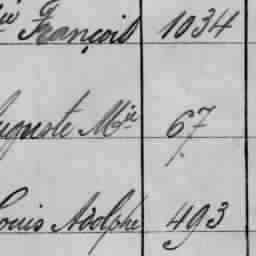 ie François 1034
uguste Mie 67
Louis Adolphe 493